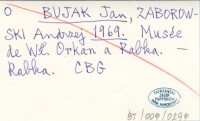 O BUJAK Jan, ZABOROW-
SKI Andrzej 1969. Musée
de Wł. Orkan à Rabka. —
Rabka. CBG
BJ/004/0299